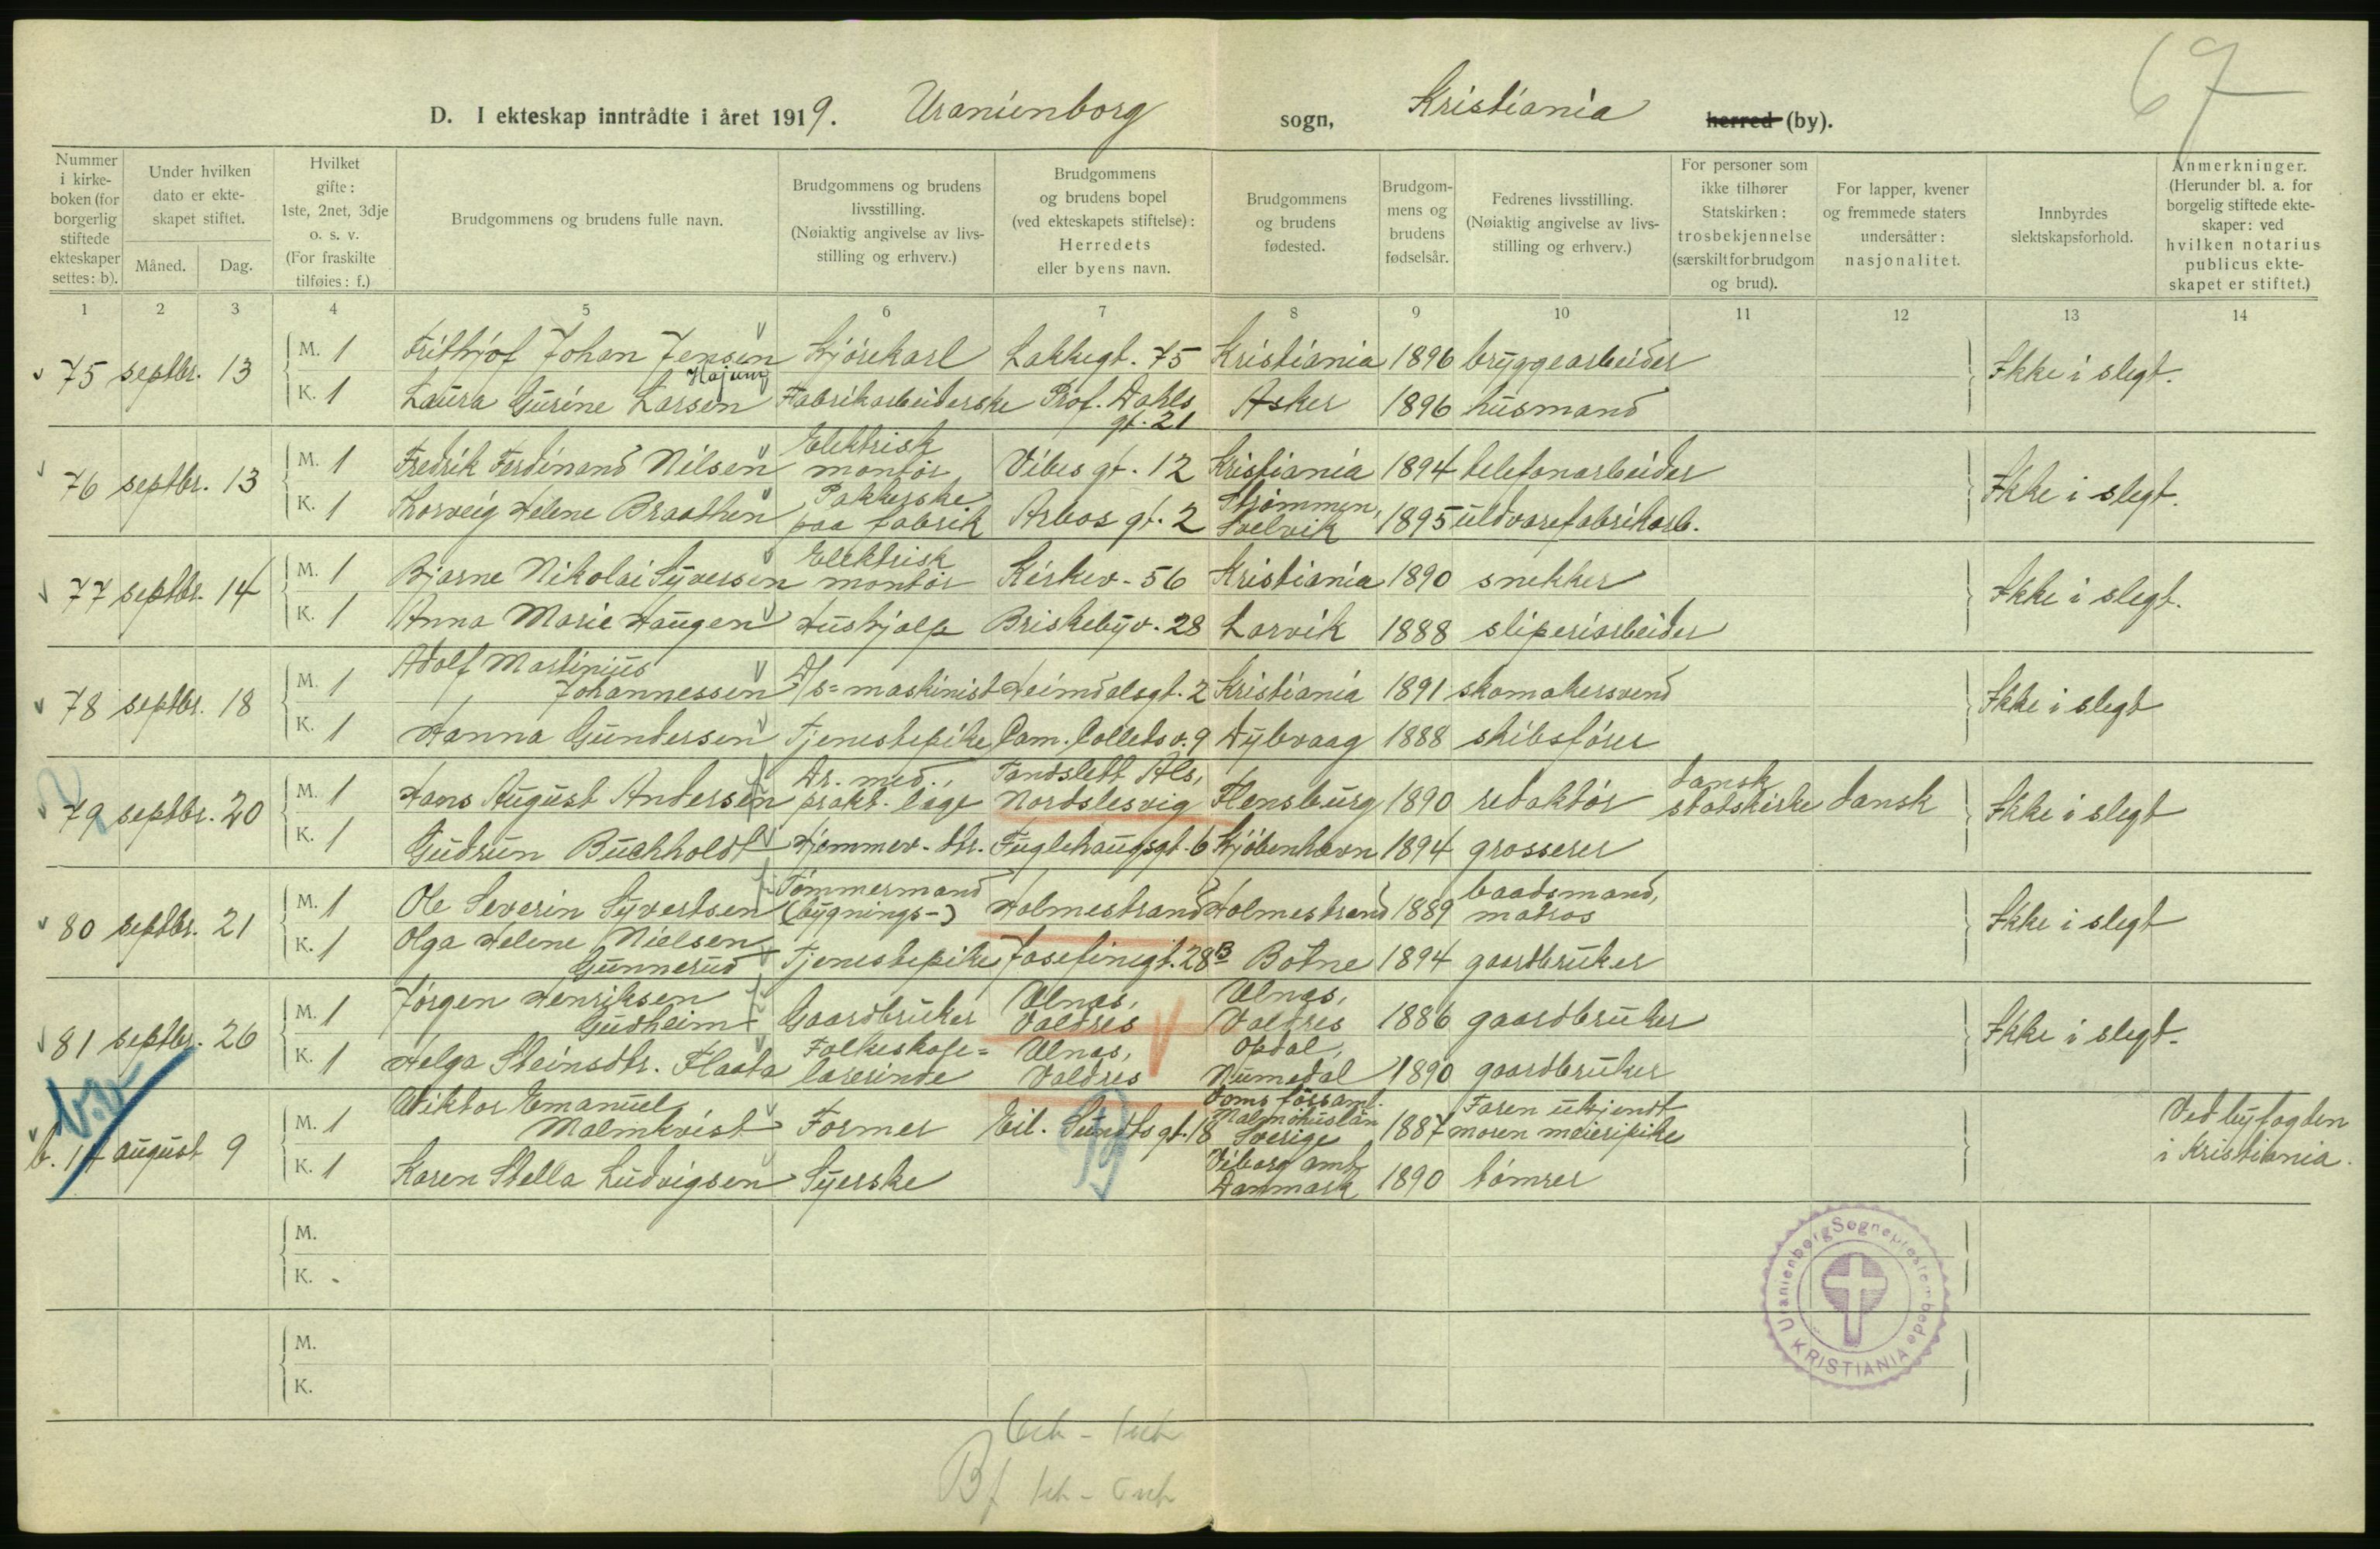 67
D. I ekteskap inntrådte i året 1919. Uranienborg sogn, Kristiania herred (by).
Nummer i kirkeboken (for borgerlig stiftede ekteskaper settes: b).
Under hvilken dato er ekteskapet stiftet.
Måned.
Dag.
Hvilket gifte: 1ste, 2net, 3dje o. s. v. (For fraskilte tilføies: f.)
Brudgommens og brudens fulle navn.
Brudgommens og brudens livsstilling. (Nøiaktig angivelse av livsstilling og erhverv.)
Brudgommens og brudens bopel (ved ekteskapets stiftelse): Herredets eller byens navn.
Brudgommens og brudens fødested.
Brudgommens og brudens fødselsår.
Fedrenes livsstilling. (Nøiaktig angivelse av livsstilling og erhverv.)
For personer som ikke tilhører Statskirken: trosbekjennelse (særskilt for brudgom og brud).
For lapper, kvener og fremmede staters undersåtter: nasjonalitet.
Innbyrdes slektskapsforhold.
Anmerkninger. (Herunder bl. a. for borgelig stiftede ekteskaper: ved hvilken notarius publicus ekteskapet er stiftet.)
1 2 3 4 5 6 7 8 9 10 11 12 13 14
75 septbr. 13 M. 1 Frithjof Johan Jensen Kjørekarl Lakkegt. 75 Kristiania 1896 bryggearbeider Ikke i slegt.
K. 1 Laura Gurine Larsen Fabrikarbeiderske Prof. Dahls gt. 21 Asker 1896 husmand
76 septbr. 13 M. 1 Fredrik Ferdinand Nilsen Elektrisk montør Vibes gt. 12 Kristiania 1894 telefonarbeider Ikke i slegt.
K. 1 Thorveig Helene Braathen Pakkerske paa fabrik Arbos gt. 2 Strømmen, Svelvik 1895 uldvarefabrikarb.
77 septbr. 14 M. 1 Bjarne Nikolai Syversen Elektrisk montør Kirkev. 56 Kristiania 1890 snekker Ikke i slegt.
K. 1 Anna Marie Haugen Hushjælp Briskebyv. 28 Larvik 1888 sliperiarbeider
78 septbr. 18 M. 1 Adolf Martinius Johannessen D/s=maskinist Heimdalsgt. 2 Kristiania 1891 skomakersvend Ikke i slegt
K. 1 Hanna Gundersen Tjenestepike Cam. Colletts v. 9 Dybvaag 1888 skibsfører
79 septbr. 20 M. 1 Hans August Andersen Dr. med., prakt. læge Tandslett Als, Nordslesvig Flensburg 1890 redaktør dansk statskirke dansk Ikke i slegt
K. 1 Gudrun Buchholdt Hjemmev. dtr. Fuglehaugsgt. 6 Kjøbenhavn 1894 grosserer
80 septbr. 21 M. 1 Ole Severin Syvertsen Tømmermand (bygnings-) Holmestrand Holmestrand 1889 baadsmand, matros Ikke i slegt
K. 1 Olga Helene Nielsen Gunnerud Tjenestepike Josefinegt. 28B Botne 1894 gaardbruker
81 septbr. 26 M. 1 Jørgen Henriksen Gudheim Gaardbruker Ulnæs, Valdres Ulnæs, Valdres 1886 gaardbruker Ikke i slegt.
K. 1 Helga Steinsdtr. Flaata Folkeskole=lærerinde Ulnæs, Valdres Opdal, Numedal 1890 gaardbruker
august 9 M. 1 Wiktor Emanuel Malmkvist Former Eil. Sundts gt. 18 Doms församl. Malmöhuslän Sverige 1887 Faren ukjendt moren meieripike Ved byfogden i Kristiania.
K. 1 Karen Stella Ludvigsen Syerske Viborg amt Danmark 1890 tømrer
M.
K.
M.
K.
Uranienborg Sogneprestembede KRISTIANIA